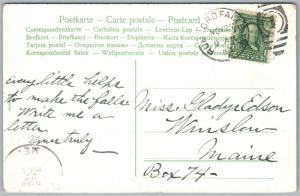 Postkarte – Carte postale – Postcard
Correspondenzkarte – Cartolina postale – Levelező-Lap
Brefkort – Briefkort – Brevkort – Dopisnice – Karta Korespondencyjna
Tarjeta postal – Открытое письмо –
Korespondenční lístek – Weltpostverein – Union postale universelle
RUMFORD FALLS
Every little helps
to make the falls
Write me a
letter
Yours truly
Miss. Gladys Edson
Winslow
Maine
Box 74 –
ME.